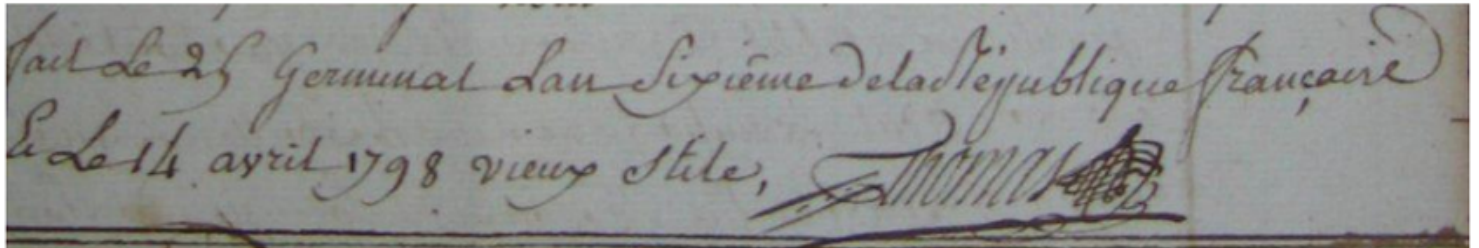 fait Le 25 Germinal Lan Sixième De la République française
Et Le 14 avril 1798 vieux Stile, Thomas